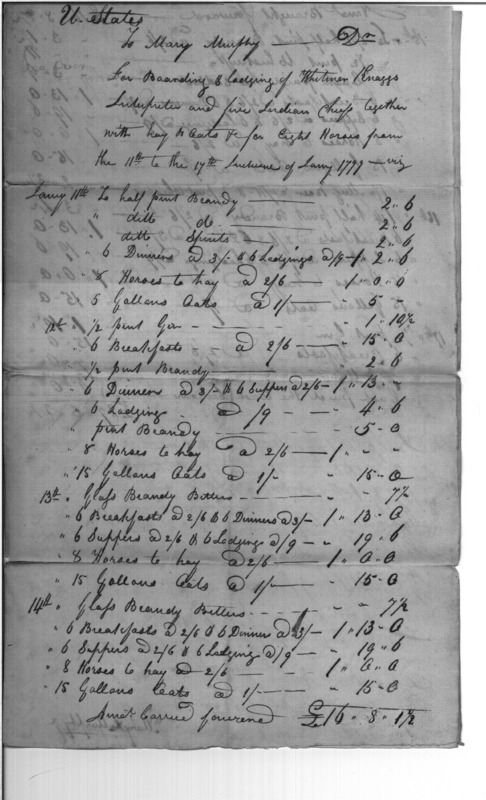 U. States
To Mary Murphy — Dr
For Boarding & Lodging of Whitmore Knaggs
Interpreter and five Indian Chiefs together
with hay & Oats &c for Eight Horses from
the 11th to the 17th Inclusive of Jany 1799 — viz
Jany 11th To half pint Brandy — 2 " 6
" ditto do — 2 " 6
ditto Spirits — 2 " 6
" 6 Dinners a 3/- & 6 Lodgings a /9 - 1 " 2 " 6
" 8 Horses to hay a 2/6 — 1 " 0 " 0
" 5 Gallons Oats a 1/- — " 5 " -
12th 1/2 pint Gin — 1 " 10 1/2
" 6 Breakfasts a 2/6 — " 15 - 0
" 1/2 pint Brandy — 2 " 6
" 6 Dinners a 3/- & 6 Suppers a 2/6 - 1 " 13 " -
" 6 Lodging a /9 — " 4 " 6
" pint Brandy — 5 - 0
" 8 Horses to hay a 2/6 — 1 " " -
" 15 Gallons Oats a 1/- " 15 - 0
13th " Glass Brandy Bitters — " " 7 1/2
" 6 Breakfasts a 2/6 & 6 Dinners a 3/- 1 " 13 - 0
" 6 Suppers a 2/6 & 6 Lodgings a /9 - " 19 " 6
" 8 Horses to hay a 2/6 — 1 " 0 - 0
" 15 Gallons Oats a 1/- — " 15 - 0
14th " Glass Brandy Bitters - - - " " 7 1/2
" 6 Breakfasts a 2/6 & 6 Dinner a 3/- 1 " 13 - 0
" 6 Suppers a 2/6 & 6 Lodging a /9 — " 19 " 6
" 8 Horses to hay a 2/6 — 1 " 0 " 0
" 15 Gallons Oats a 1/- — " 15 - 0
Amot Carried forward £16 " 8 " 1 1/2